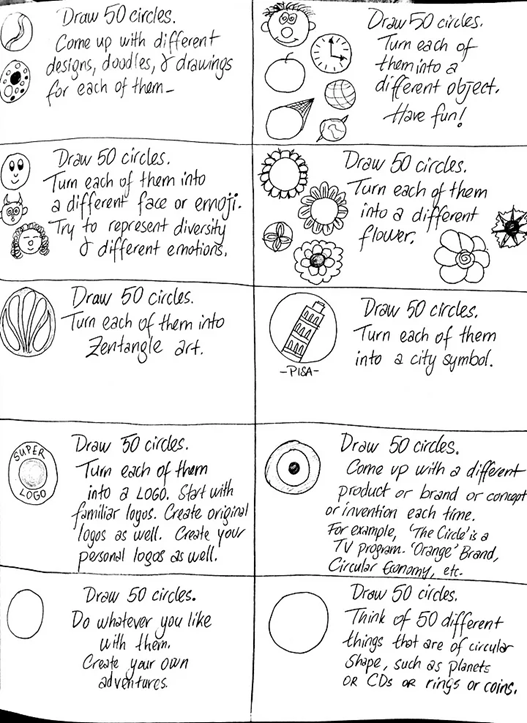 Draw 50 circles.
Come up with different
designs, doodles, & drawings
for each of them-
Draw 50 circles.
Turn each of
them into a
different object.
Have fun!
Draw 50 circles.
Turn each of them into
a different face or emoji.
Try to represent diversity
& different emotions.
Draw 50 circles.
Turn each of them
into a different
flower.
Draw 50 circles.
Turn each of them into
Zentangle art.
-PISA-
Draw 50 circles.
Turn each of them
into a city symbol.
SUPER
LOGO
Draw 50 circles.
Turn each of them
into a LOGO. Start with
familiar logos. Create original
logos as well. Create your
personal logos as well.
Draw 50 circles.
Come up with a different
product or brand or concept
or invention each time.
For example, 'The Circle' is a
TV program. 'Orange' Brand,
Circular Economy, etc.
Draw 50 circles.
Do whatever you like
with them.
Create your own
adventures.
Draw 50 circles.
Think of 50 different
things that are of circular
shape, such as planets
OR CDs OR rings or coins.